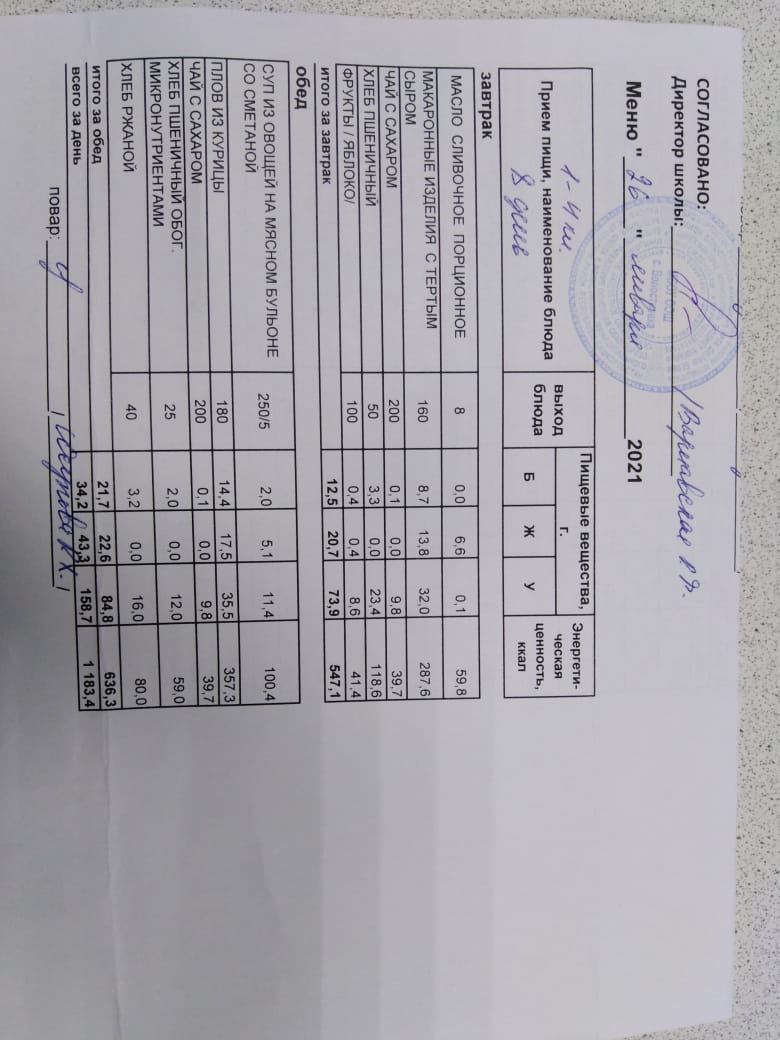 СОГЛАСОВАНО:
Директор школы: /Варшавская
Меню " 26 " января 2021
1-4 кл.
8 день
Прием пищи, наименование блюда
выход блюда
Пищевые вещества, г.
Энергети-ческая ценность, ккал
Б Ж У
завтрак
МАСЛО СЛИВОЧНОЕ ПОРЦИОННОЕ 8 0,0 6,6 0,1 59,8
МАКАРОННЫЕ ИЗДЕЛИЯ С ТЕРТЫМ
СЫРОМ 160 8,7 13,8 32,0 287,6
ЧАЙ С САХАРОМ 200 0,1 0,0 9,8 39,7
ХЛЕБ ПШЕНИЧНЫЙ 50 3,3 0,0 23,4 118,6
ФРУКТЫ / ЯБЛОКО/ 100 0,4 0,4 8,6 41,4
итого за завтрак 12,5 20,7 73,9 547,1
обед
СУП ИЗ ОВОЩЕЙ НА МЯСНОМ БУЛЬОНЕ
СО СМЕТАНОЙ 250/5 2,0 5,1 11,4 100,4
ПЛОВ ИЗ КУРИЦЫ 180 14,4 17,5 35,5 357,3
ЧАЙ С САХАРОМ 200 0,1 0,0 9,8 39,7
ХЛЕБ ПШЕНИЧНЫЙ ОБОГ.
МИКРОНУТРИЕНТАМИ 25 2,0 0,0 12,0 59,0
ХЛЕБ РЖАНОЙ 40 3,2 0,0 16,0 80,0
итого за обед 21,7 22,6 84,8 636,3
всего за день 34,2 43,3 158,7 1 183,4
повар: / /